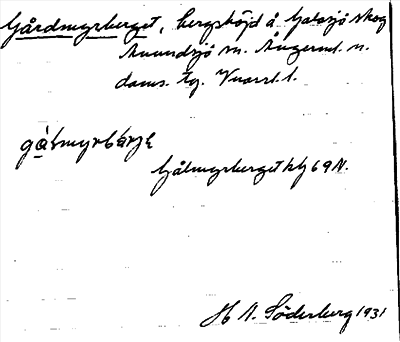 Gårdmyrberget, bergshöjd å Galasjö skog
Anundsjö sn. Ångerml. n.
doms. tg. Vuorrl. l.
gålmyrbärjẹ
Gålmyrberget kbl 69 N.
H A. Söderberg 1931